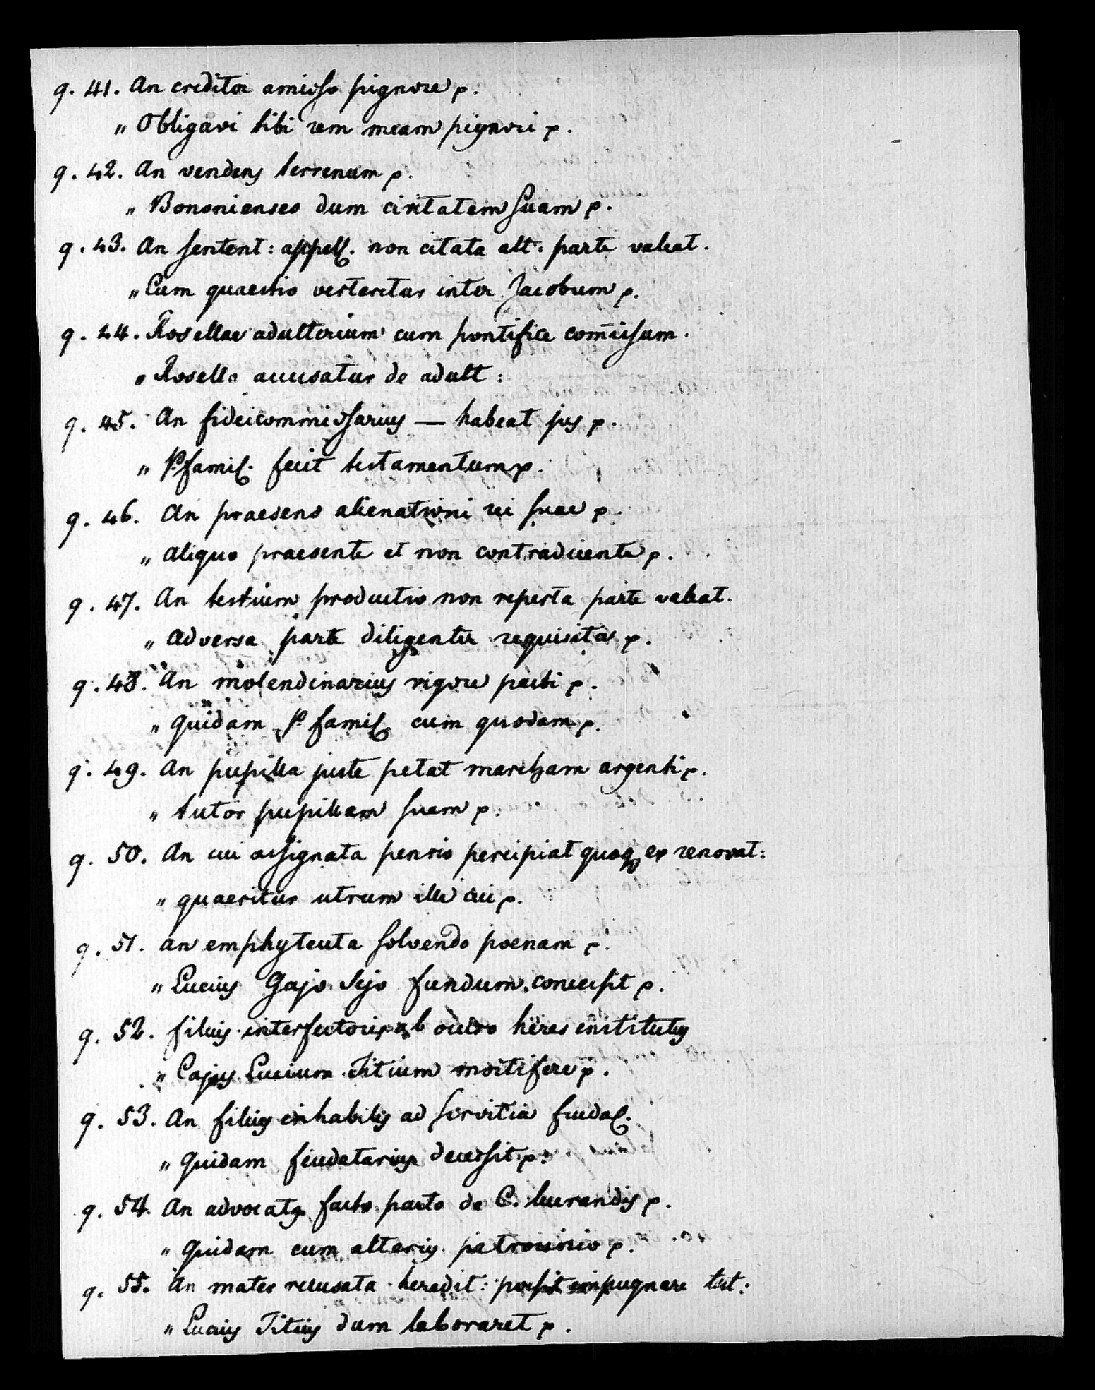 q. 41. An creditor amisso pignore p.
„ Obligavi tibi rem meam pignori p.
q. 42. An vendens terrenum p.
„ Bononienses dum civitatem suam p.
q. 43. An sentent: appell. non citata alt. parte valeat.
„ Cum quaestio verteretur inter Jacobum p.
q. 44. Rosellae adulterium cum pontifice com̄issum.
„ Rosella accusatur de adult:
q. 45. An fideicommissarius — habeat jus p.
„ P. famil. fecit testamentum p.
q. 46. An praesens alienationi rei suae p.
„ Aliquo praesente et non contradicente p.
q. 47. An testium productio non reperta parte valeat.
„ Adversa parte diligenter requisita p.
q. 48. An molendinarius rigore pacti p.
„ Quidam P. famil. cum quodam p.
q. 49. An pupilla juste petat marcham argenti p.
„ Tutor pupillam suam p.
q. 50. An cui assignata pensio percipiat quoq ex renovat:
„ quaeritur utrum ille cui p.
q. 51. An emphyteuta solvendo poenam p.
„ Lucius Gajo Sejo fundum concessit p.
q. 52. filius interfectoris ab occiso heres institutus
„ Cajus Lucium Titium mortifere p.
q. 53. An filius inhabilis ad servitia feudal.
„ Quidam feudatarius decessit p.
q. 54. An advocatus facto pacto de C. lucrandis p.
„ Quidam cum alterius patrocinio p.
q. 55. An mater recusata heredit: possit impugnare tut:
„ Lucius Titius dum laboraret p.